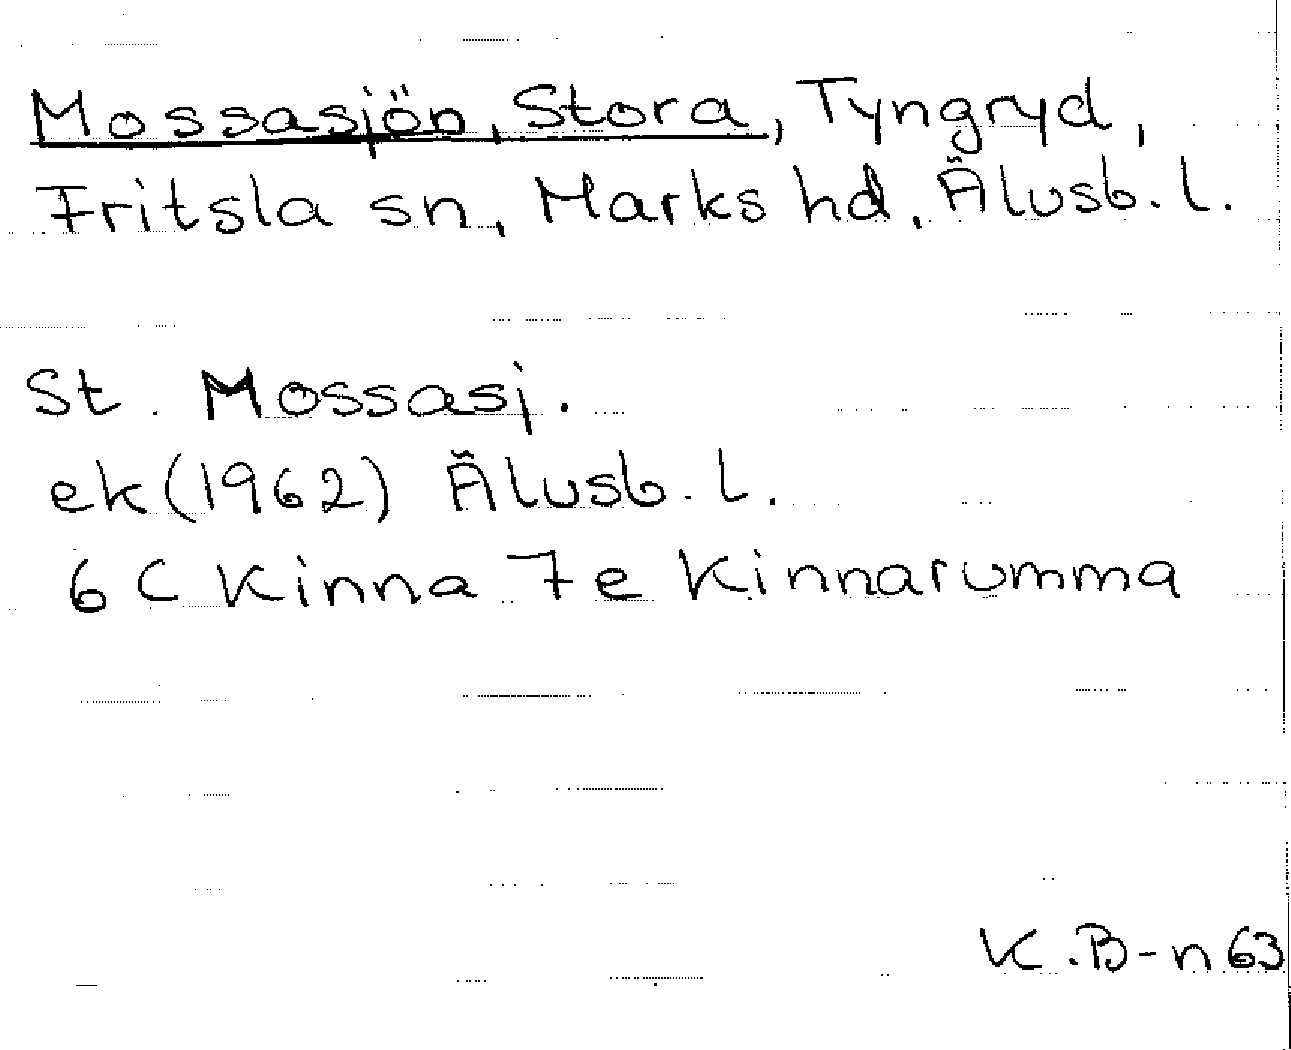 Mossasjön, Stora, Tyngryd,
Fritsla sn, Marks hd, Älvsb. l.
St. Mossasj.
ek (1962) Älvsb. l.
6 C Kinna 7 e Kinnarumma
K.B-n 63